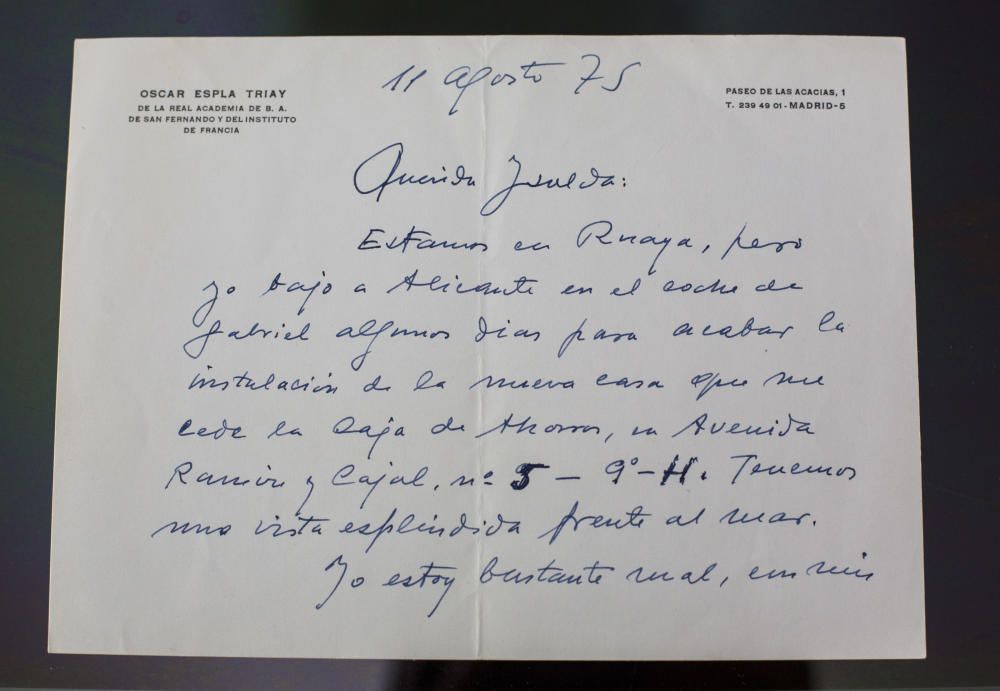 OSCAR ESPLA TRIAY
DE LA REAL ACADEMIA DE B. A.
DE SAN FERNANDO Y DEL INSTITUTO
DE FRANCIA
PASEO DE LAS ACACIAS, 1
T. 239 49 01 - MADRID-5
11 agosto 75
Querida Isolda:
Estamos en Ruaya, pero
yo bajo a Alicante en el coche de
Gabriel algunos dias para acabar la
instalación de la nueva casa que me
cede la Caja de Ahorros, en Avenida
Ramón y Cajal, nº 5 - 9º - H. Tenemos
una vista espléndida frente al mar.
Yo estoy bastante mal, con mis